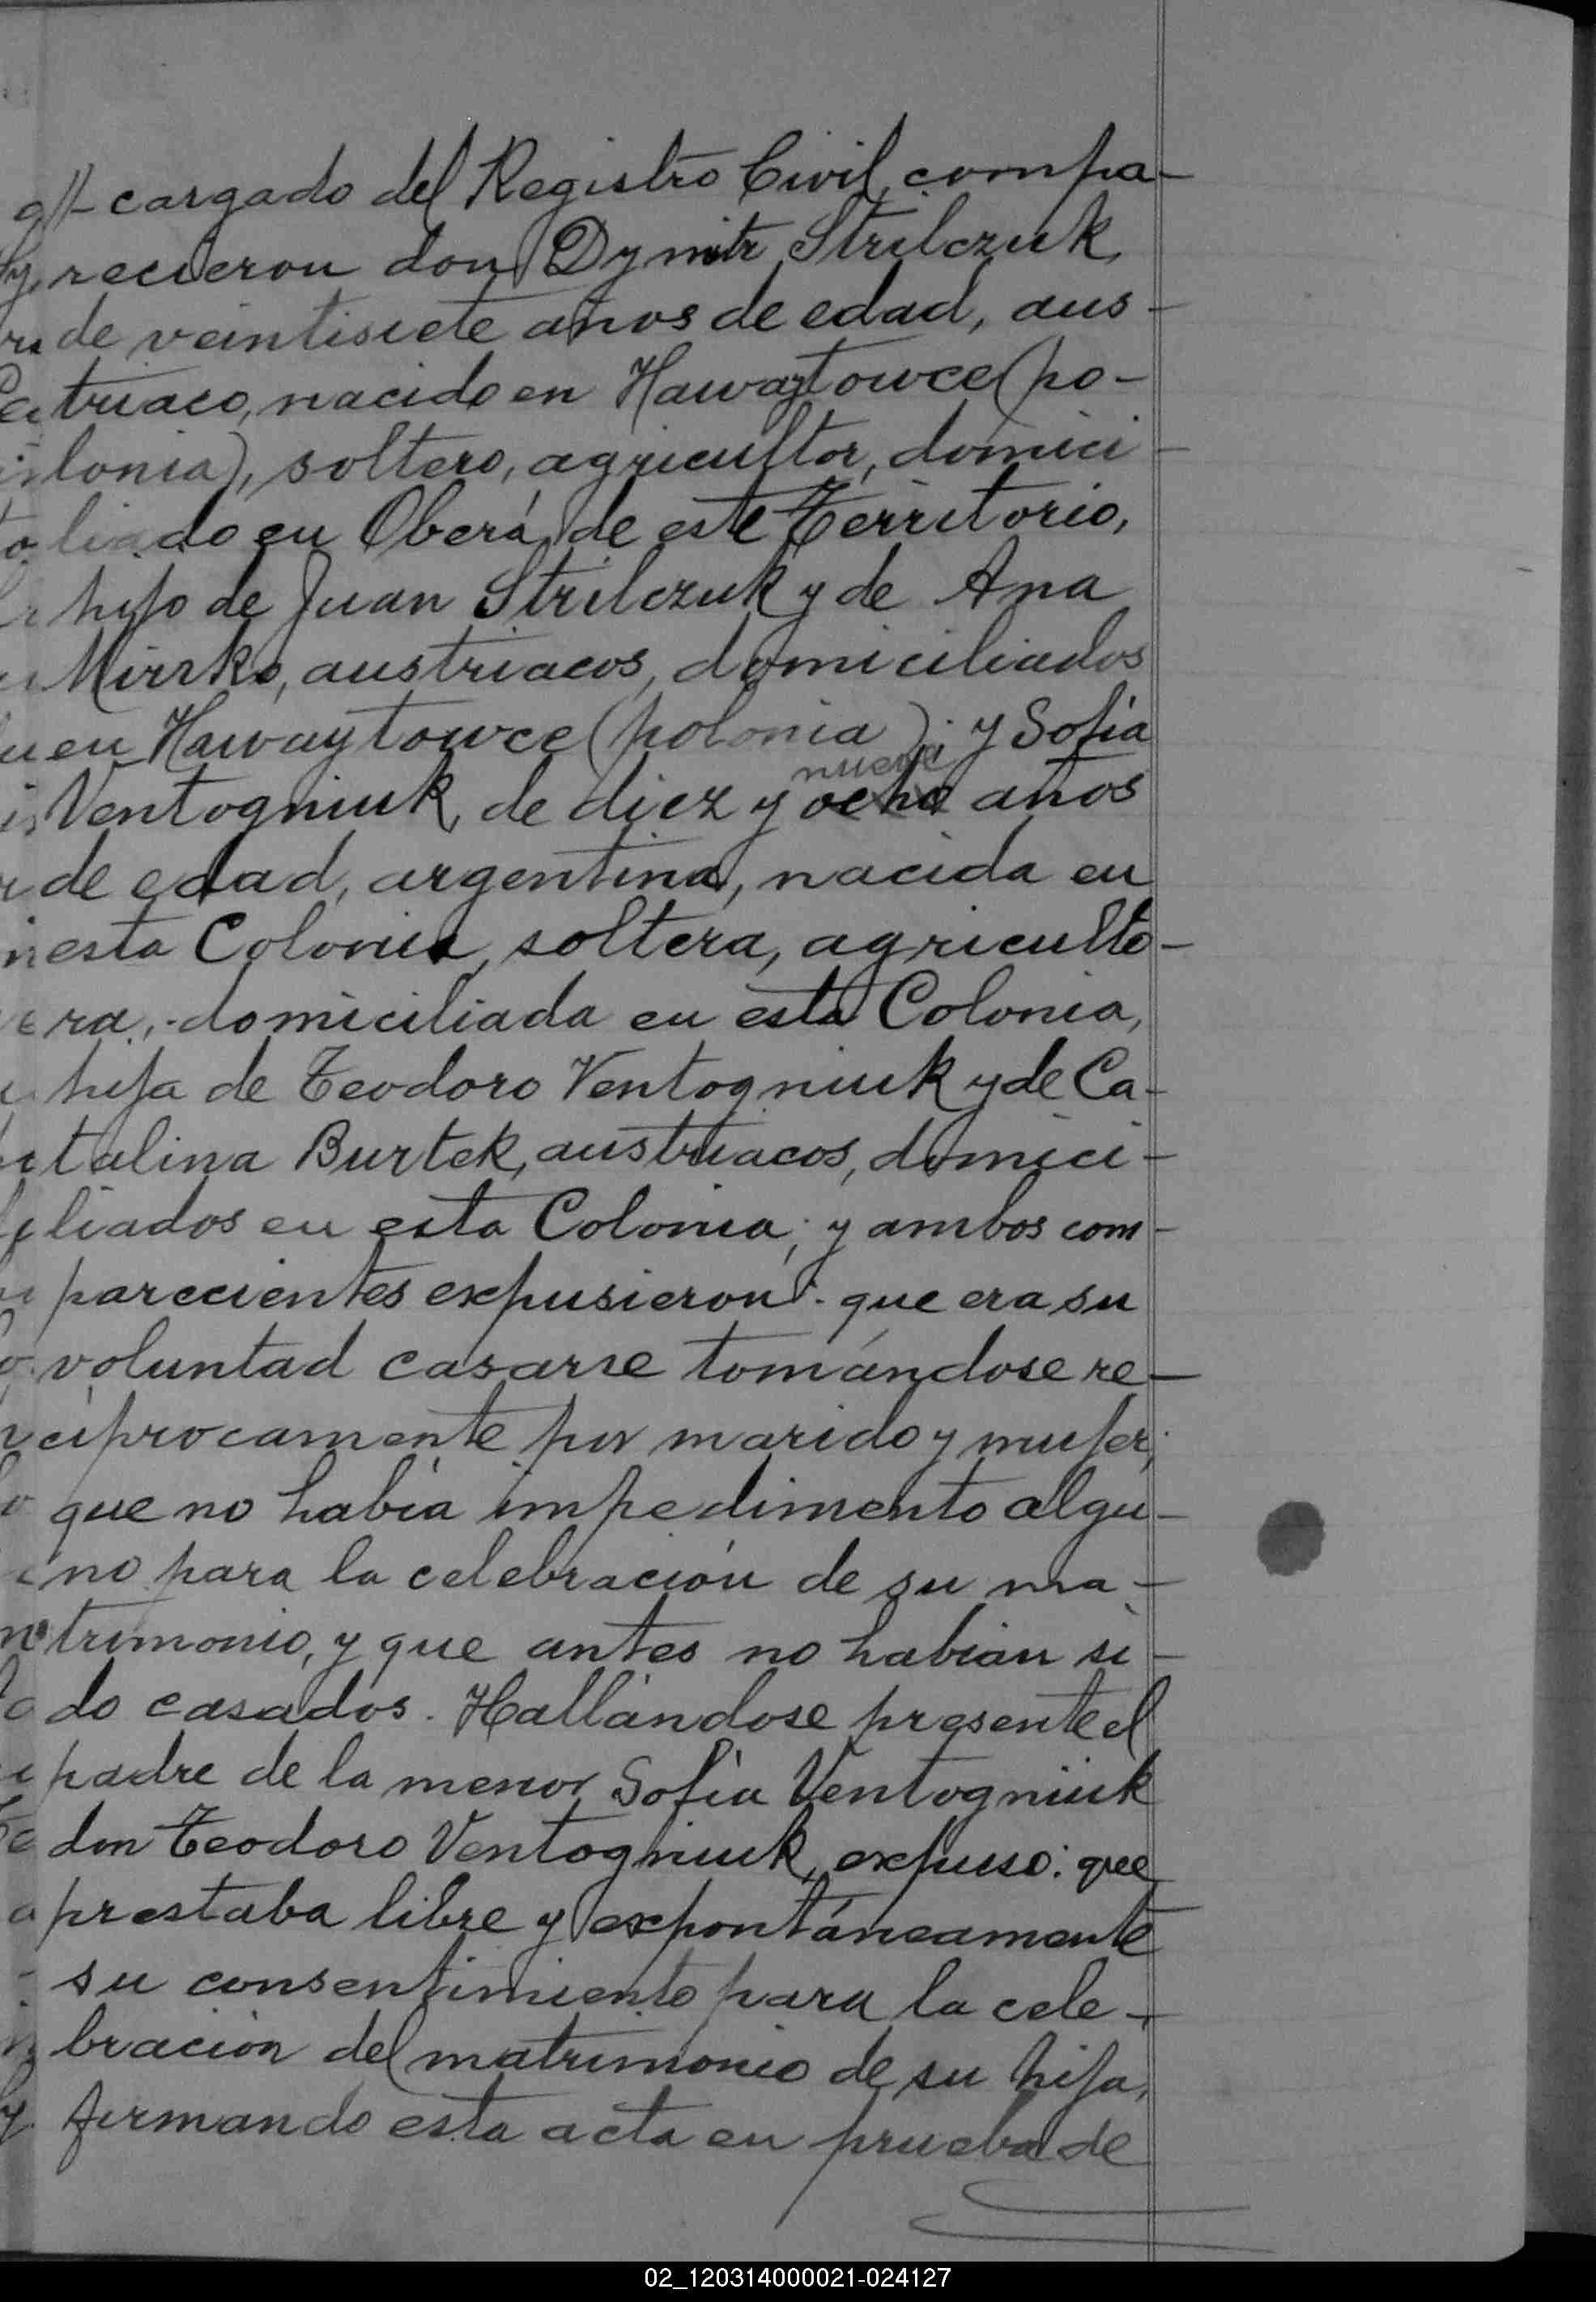 cargado del Registro Civil, compa-
recieron don Dymitr Strilczuk,
de veintisiete años de edad, aus-
triaco, nacido en Hawaytowce (po-
lonia), soltero, agricultor, domici-
liado en Oberá, de este Territorio,
hijo de Juan Strilczuk y de Ana
Mirsko, austriacos, domiciliados
en Hawaytowce (polonia); y Sofía
nueve
Ventogniuk, de diez y ocho años
de edad, argentina, nacida en
esta Colonia, soltera, agriculto-
ra, domiciliada en esta Colonia,
hija de Teodoro Ventogniuk y de Ca-
talina Burtek, austriacos, domici-
liados en esta Colonia; y ambos com-
parecientes expusieron: que era su
voluntad casarse tomándose re-
ciprocamente por marido y mujer;
que no había impedimento algu-
no para la celebración de su ma-
trimonio, y que antes no habían si-
do casados. Hallándose presente el
padre de la menor Sofía Ventogniuk
don Teodoro Ventogniuk, expuso: que
prestaba libre y expontáneamente
su consentimiento para la cele-
bración del matrimonio de su hija,
firmando esta acta en prueba de
02_120314000021-024127